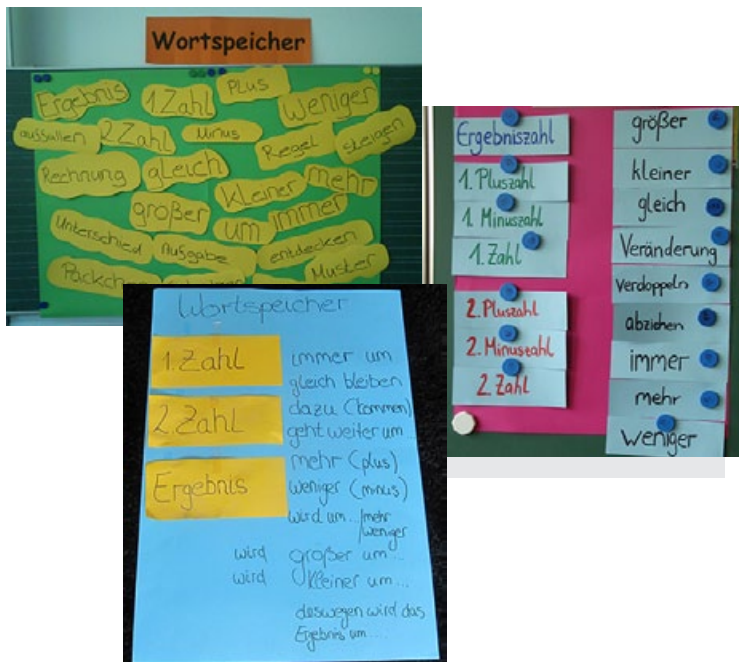 Wortspeicher
Ergebnis 1.Zahl PLUS weniger
auffallen 2.Zahl Minus Regel steigen
Rechnung gleich kleiner mehr
größer um immer
Unterschied Aufgabe entdecken
Päckchen Muster
Ergebniszahl
1. Pluszahl
1. Minuszahl
1. Zahl
2. Pluszahl
2. Minuszahl
2. Zahl
größer
kleiner
gleich
Veränderung
verdoppeln
abziehen
immer
mehr
weniger
Wortspeicher
1. Zahl
2. Zahl
Ergebnis
immer um
gleich bleiben
dazu (kommen)
geht weiter um...
mehr (plus)
weniger (minus)
wird um.../mehr
/weniger
wird größer um...
wird kleiner um...
deswegen wird das
Ergebnis um....